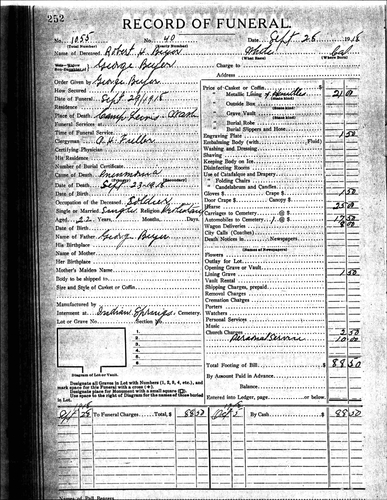 252
RECORD OF FUNERAL.
No. 1055 No. 40 Date, Sept 26 1918
(Total Number) (Yearly Number)
Robert H. White Cal
(What Race) (Where Born)
Son-Wife-Widow Son-Daughter of George Charge to
Address
Order Given by George
How Secured
Date of Funeral Sept 29, 1918
Residence
Place of Death Camp Lewis
Funeral Services at
Time of Service
Clergyman A. H. Fuller
Certifying Physician
His Residence
Number of Burial Certificate
Cause of Death Pneumonia
(Primary) (Secondary)
Date of Death Sept 23, 1918
Date of Birth
Occupation of the Deceased Soldier
Single or Married Single Religion Protestant
Aged 22 Years, Months, Days.
Date of Birth
Name of Father George
His Birthplace
Name of Mother
Her Birthplace
Mother's Maiden Name
Body to be shipped to
Size and Style of Casket or Coffin
Manufactured by
Interment at Indian Springs Cemetery.
Lot or Grave No. Section No.
1.
2.
3.
4.
5.
6.
Diagram of Lot or Vault.
Designate all Graves in Lot with Numbers (1, 2, 3, 4, etc.), and
mark space for this Funeral with a cross (+).
Designate place for Monument with a small square (□).
Use space to the right of Diagram for the names of those buried
in Lot.
Price of Casket or Coffin $
" Metallic Lining 21 00
(State Kind)
" Outside Box
(State Kind)
" Grave Vault
(State Kind)
" Burial Robe
" Burial Slippers and Hose
Engraving Plate 1 50
Embalming Body (with Fluid)
Washing and Dressing
Shaving
Keeping Body on Ice
Disinfecting Rooms
Use of Catafalque and Drapery
" Folding Chairs
" Candelabrum and Candles
Gloves $ Crape $ 1 50
Door Crape $ Canopy $
Hearse 25 00
Carriages to Cemetery @ $
Automobiles to Cemetery 1 @ $ 17 50
Wagon Deliveries 8 00
City Calls (Coaches)
Death Notices in Newspapers.
(Names of Newspapers)
Flowers
Outlay for Lot
Opening Grave or Vault
Lining Grave 1 50
Vault Rental
Shipping Charges, prepaid
Removal Charges
Cremation Charges
Porters
Watchers
Personal Services
Music
Church Charges 2 50
Personal Service 10 00
Total Footing of Bill $ 88 50
By Amount Paid in Advance
Balance
Entered into Ledger, page or below.
1918
28 To Funeral Charges Total, $ 88 50 Oct 5 By Cash $ 88 50
Names of Pall Bearers